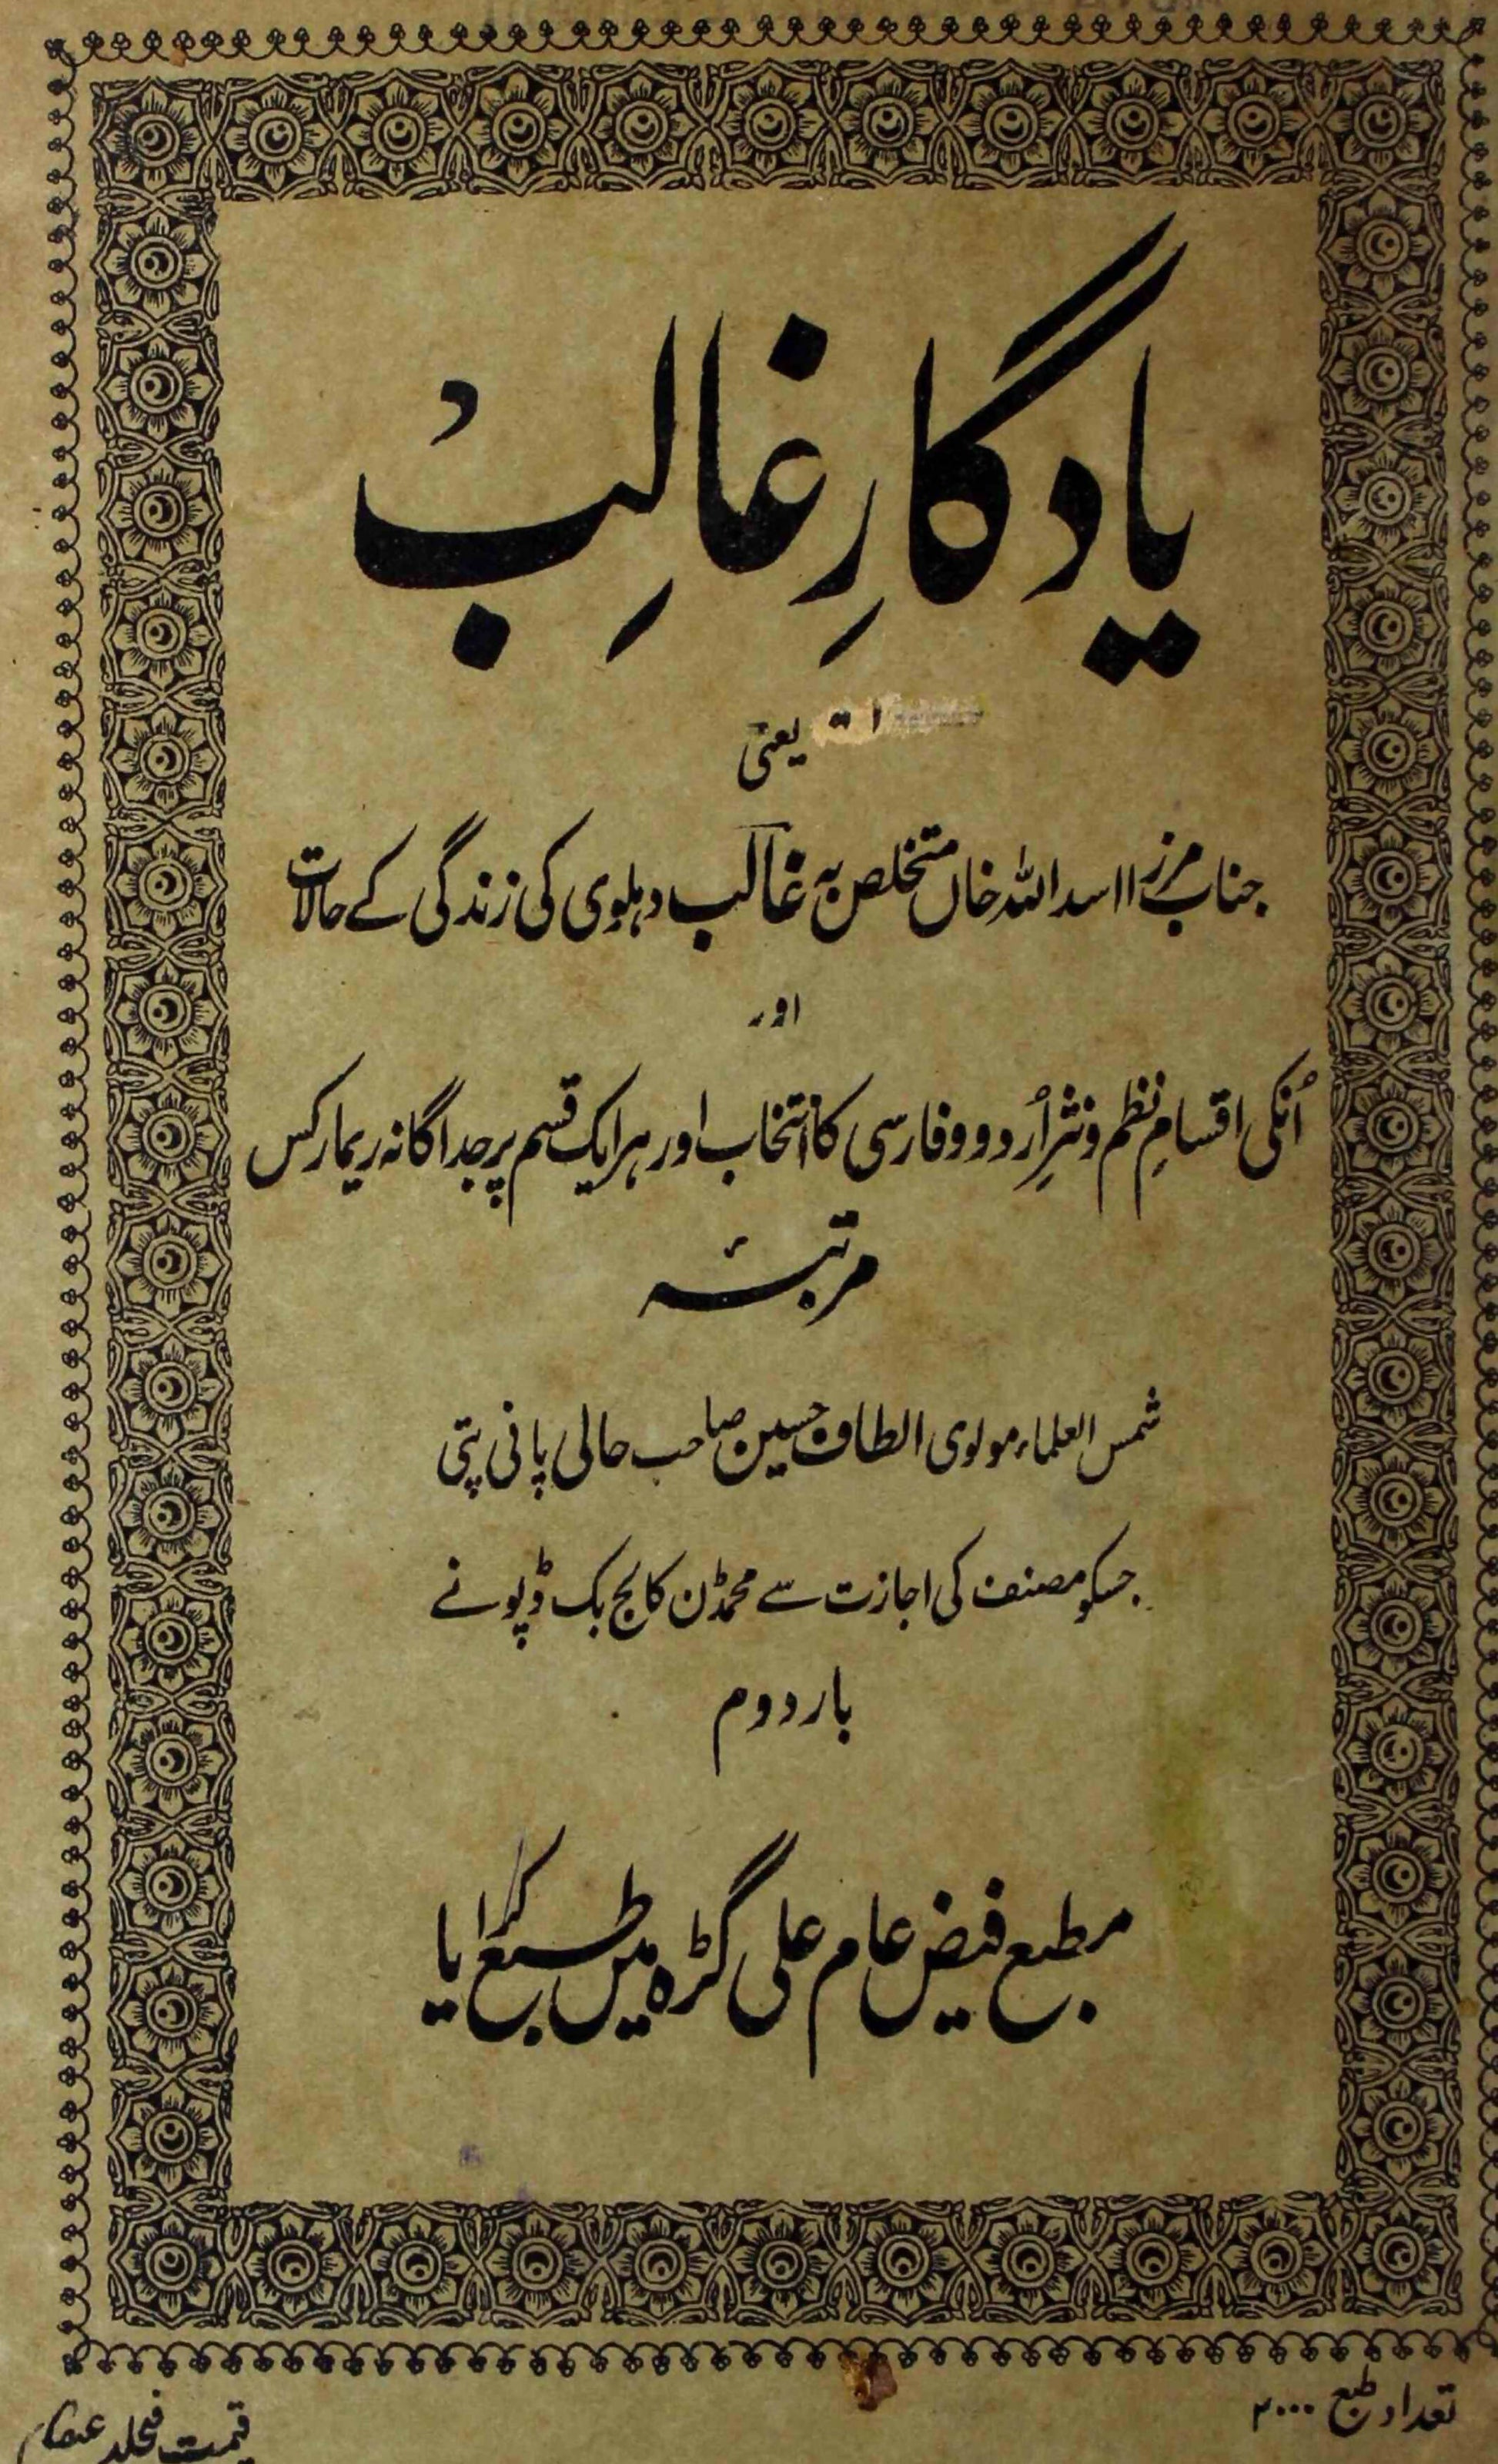 یادگارِ غالِبْ
یعنی
جناب مرزا اسداللہ خاں متخلص بہ غالب دہلوی کی زندگی کے حالات
اور
اُنکی اقسامِ نظم و نثرِ اُردو و فارسی کا انتخاب اور ہر ایک قسم پر جداگانہ ریمارکس
مرتبۂ
شمس العلماء مولوی الطاف حسین صاحب حالی پانی پتی
جسکو مصنف کی اجازت سے محمڈن کالج بک ڈپو نے
بار دوم
مطبع فیض عام علی گڑہ میں طبع کرایا
تعداد طبع ۲۰۰۰
قیمت فیجلد